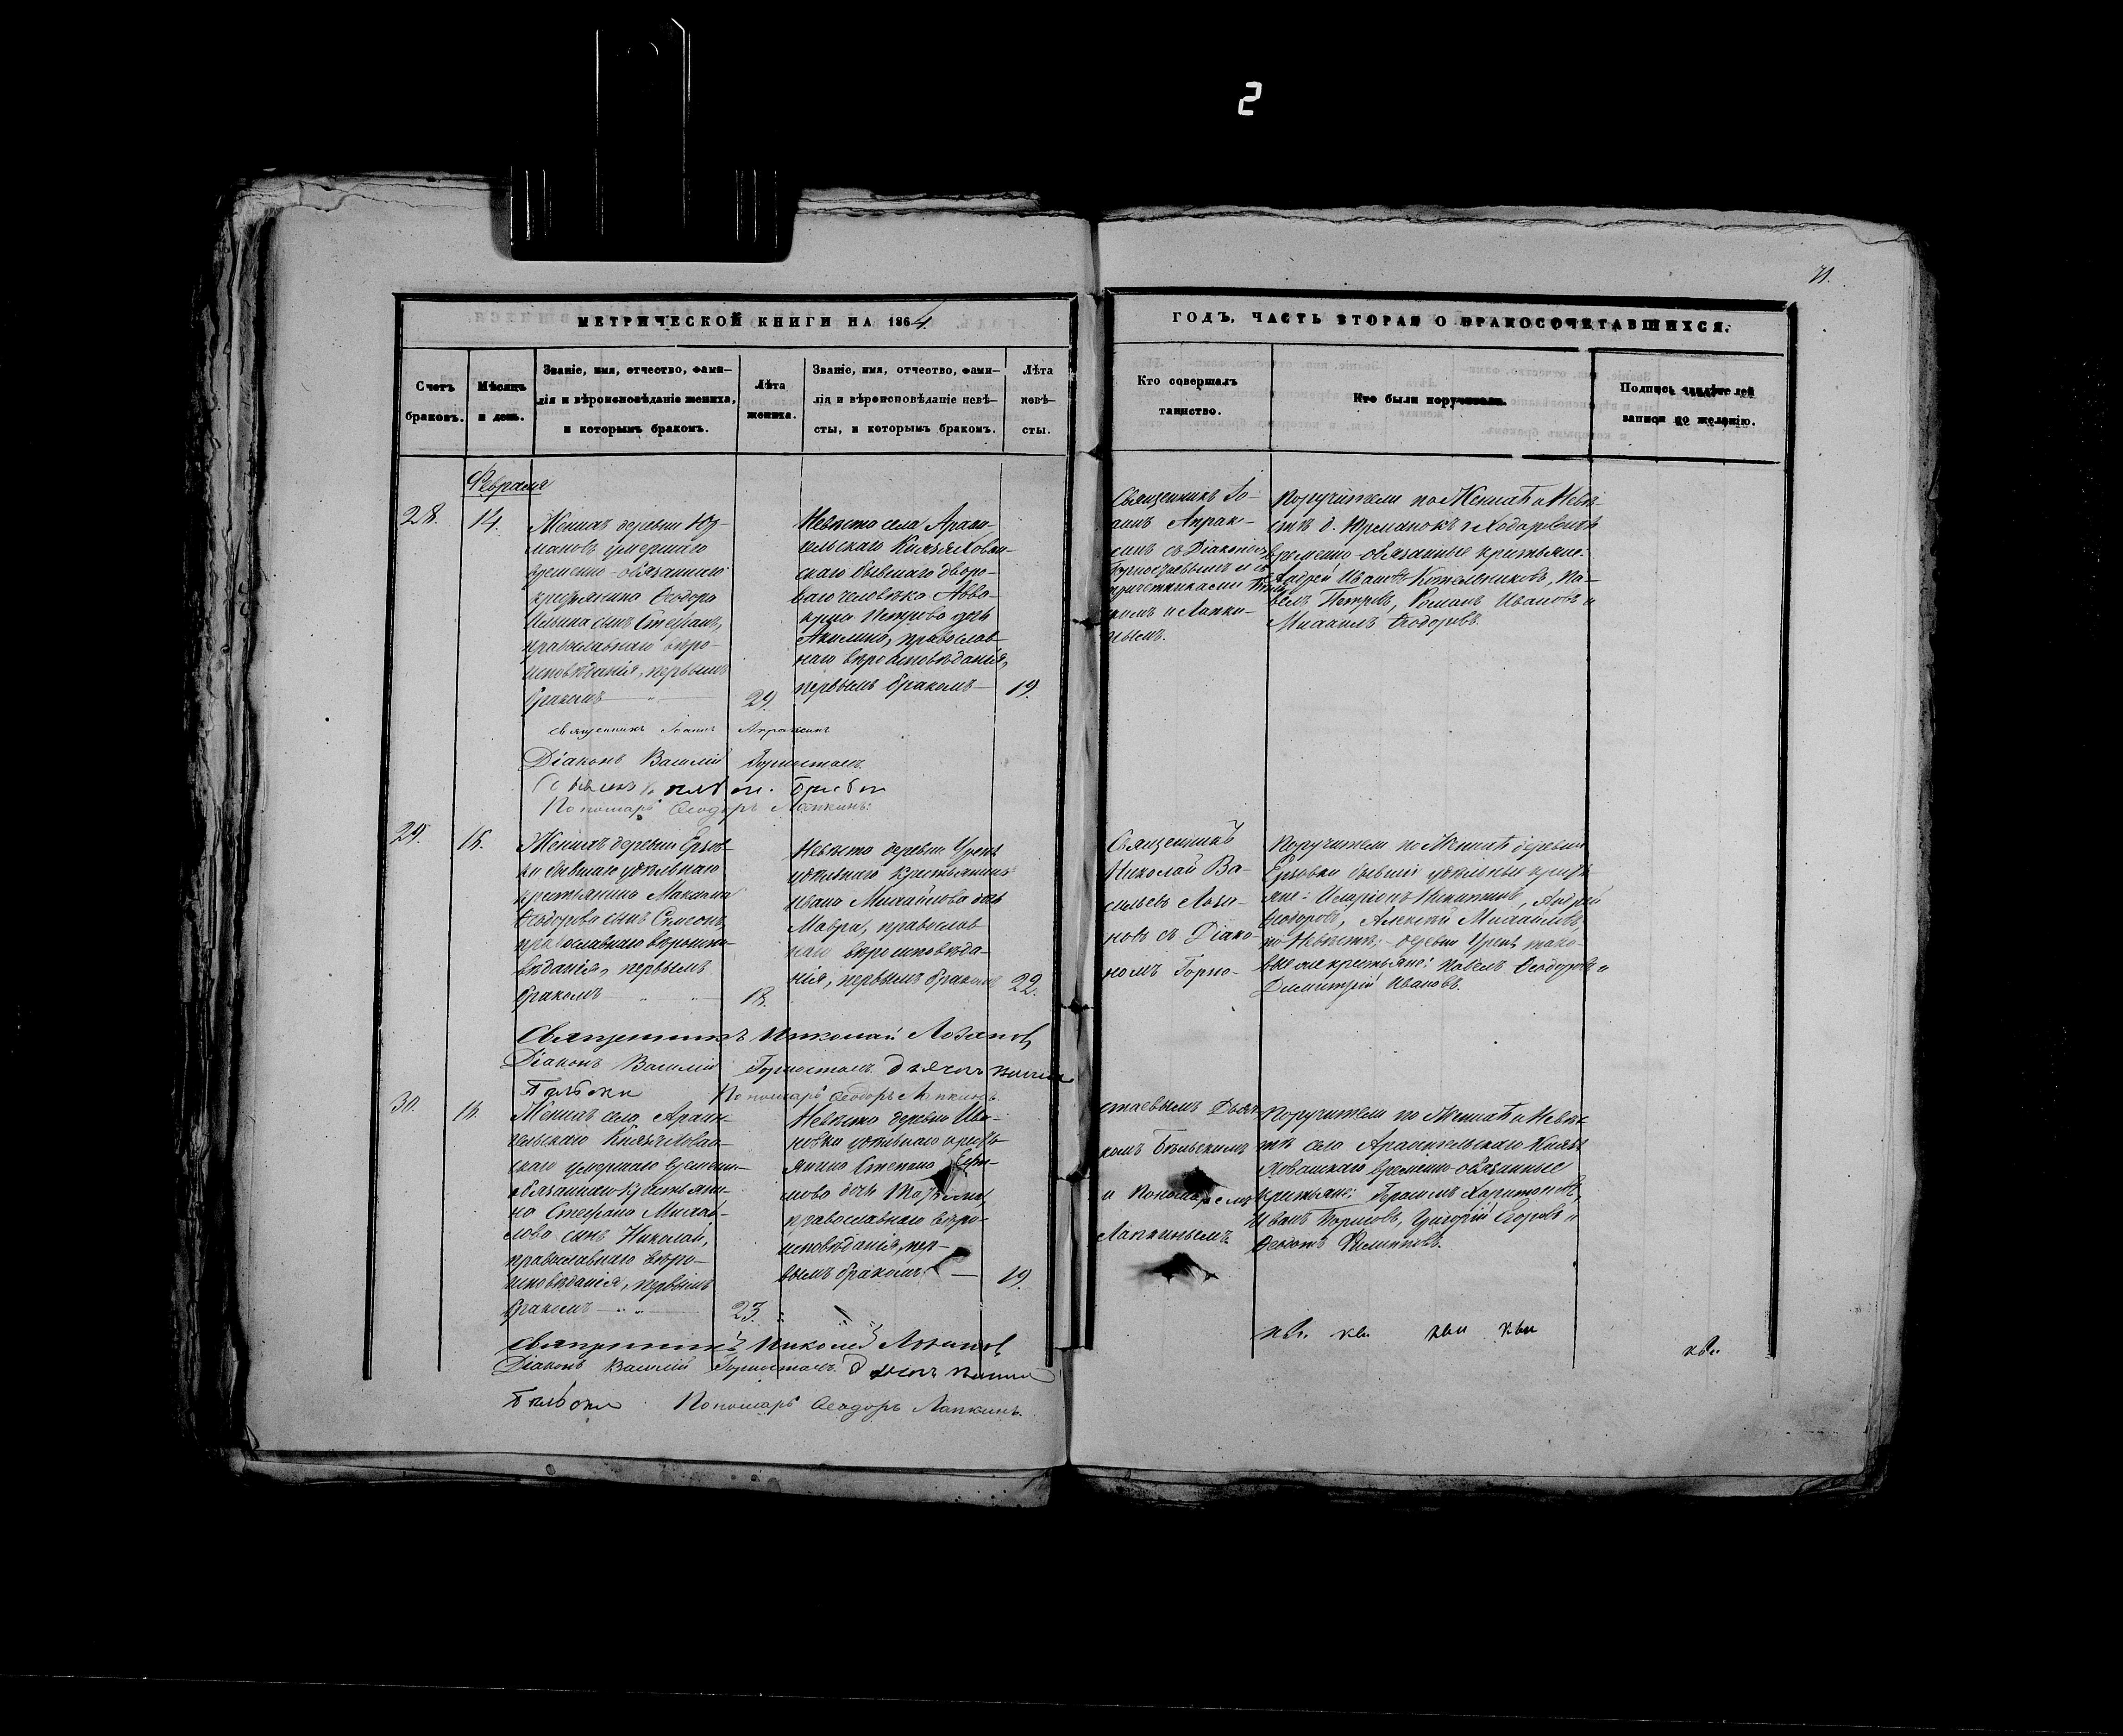 2
71.
МЕТРИЧЕСКОЙ КНИГИ НА 1864
ГОДЪ, ЧАСТЬ ВТОРАЯ О БРАКОСОЧЕТАВШИХСЯ.
Счетъ
браковъ.
Мѣсяцъ
и день.
Званіе, имя, отчество, фами-
лія и вѣроисповѣданіе жениха,
и которымъ бракомъ.
Лѣта
жениха.
Званіе, имя, отчество, фами-
лія и вѣроисповѣданіе невѣ-
сты, и которымъ бракомъ.
Лѣта
невѣ-
сты.
Кто совершалъ
таинство.
Кто были поручители.
Подпись свидѣтелей
записи по желанію.
Февраля
28.
14.
Женихъ деревни
умершаго
временно-обязаннаго
крестьянина Ѳеодора
Ильина сынъ Стефанъ,
православнаго вѣро-
исповѣданія, первымъ
бракомъ
29.
Невѣста села Архан-
гельскаго Князя Хован-
скаго бывшаго дворо-
ваго человѣка
Петрова дочь
Акилина, православ-
наго вѣроисповѣданія,
первымъ бракомъ
19.
Священникъ Іо-
аннъ Апрак-
синъ съ Діакономъ
Горностаевымъ и съ
причетниками
и Лапки-
нымъ.
Поручители по Женихѣ и Невѣ-
стѣ д.
временно-обязанные крестьяне:
Андрей Ивановъ Котельниковъ, Па-
велъ Петровъ, Романъ Ивановъ и
Михаилъ Ѳеодоровъ.
священникъ Іоаннъ Апраксинъ
Діаконъ Василій Горностаевъ
Пономарь Ѳеодоръ Лапкинъ.
29.
16.
Женихъ деревни Ерзов-
ки бывшаго удѣльнаго
крестьянина
Ѳеодорова сынъ Симеонъ,
православнаго вѣроиспо-
вѣданія, первымъ
бракомъ
18.
Невѣста деревни
удѣльнаго крестьянина
Ивана Михайлова дочь
Мавра, православ
наго вѣроисповѣда-
нія, первымъ бракомъ
22.
Священникъ
Николай Ва-
сильевъ Лоза-
новъ съ Діако-
номъ Горно-
Поручители по Женихѣ деревни
Ерзовки бывшіе удѣльные кресть
яне: Иларіонъ Никитинъ, Андрей
Ѳеодоровъ, Алексѣй Михайловъ,
по Невѣстѣ: деревни тако-
вые же крестьяне: Павелъ Ѳеодоровъ и
Димитрій Ивановъ.
Священникъ Николай Лозановъ
Діаконъ Василій Горностаевъ
Пономарь Ѳеодоръ Лапкинъ
30.
16.
Женихъ села Архан-
гельскаго Князя Хован-
скаго умершаго временно-
обязаннаго крестьяни-
на Стефана Михай-
лова сынъ Николай,
православнаго вѣро-
исповѣданія, первымъ
бракомъ
23.
Невѣста деревни Ива-
новки удѣльнаго кресть-
янина Степана
дочь
православнаго вѣро-
исповѣданія, пер-
вымъ бракомъ
19.
стаевымъ Дьяч-
комъ Бѣльскимъ
и Пономаремъ
Лапкинымъ.
Поручители по Женихѣ и Невѣс
тѣ села Архангельскаго Князя
Хованскаго временно-обязанные
крестьяне: Герасимъ Харитоновъ,
Иванъ Борисовъ, Григорій Егоровъ и
Ѳедотъ Филипповъ.
Священникъ Николай Лозановъ
Діаконъ Василій Горностаевъ
Пономарь Ѳеодоръ Лапкинъ.